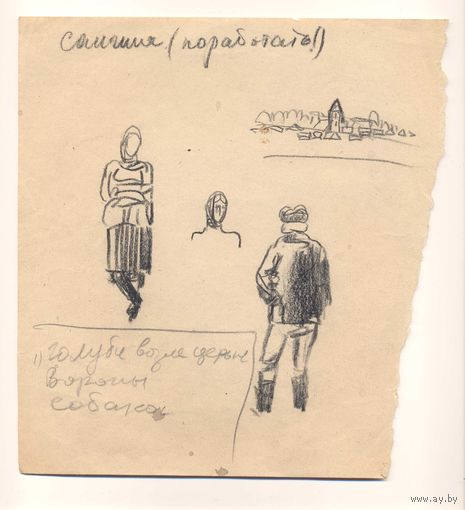 (поработать!)
"голуби возле церкви
вороны
собака
www.ay.by